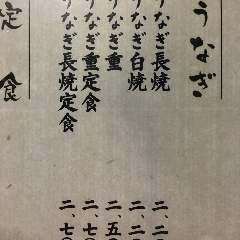 うなぎ
うなぎ長焼 二、二
うなぎ白焼 二、二〇
うなぎ重 二、五〇
うなぎ重定食 二、七〇
うなぎ長焼定食 二、七〇
定食